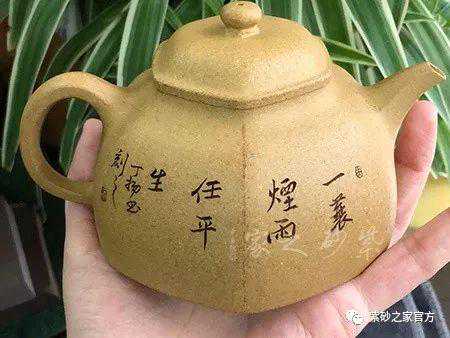 一蓑
煙雨
任平
生
紫砂之家官方